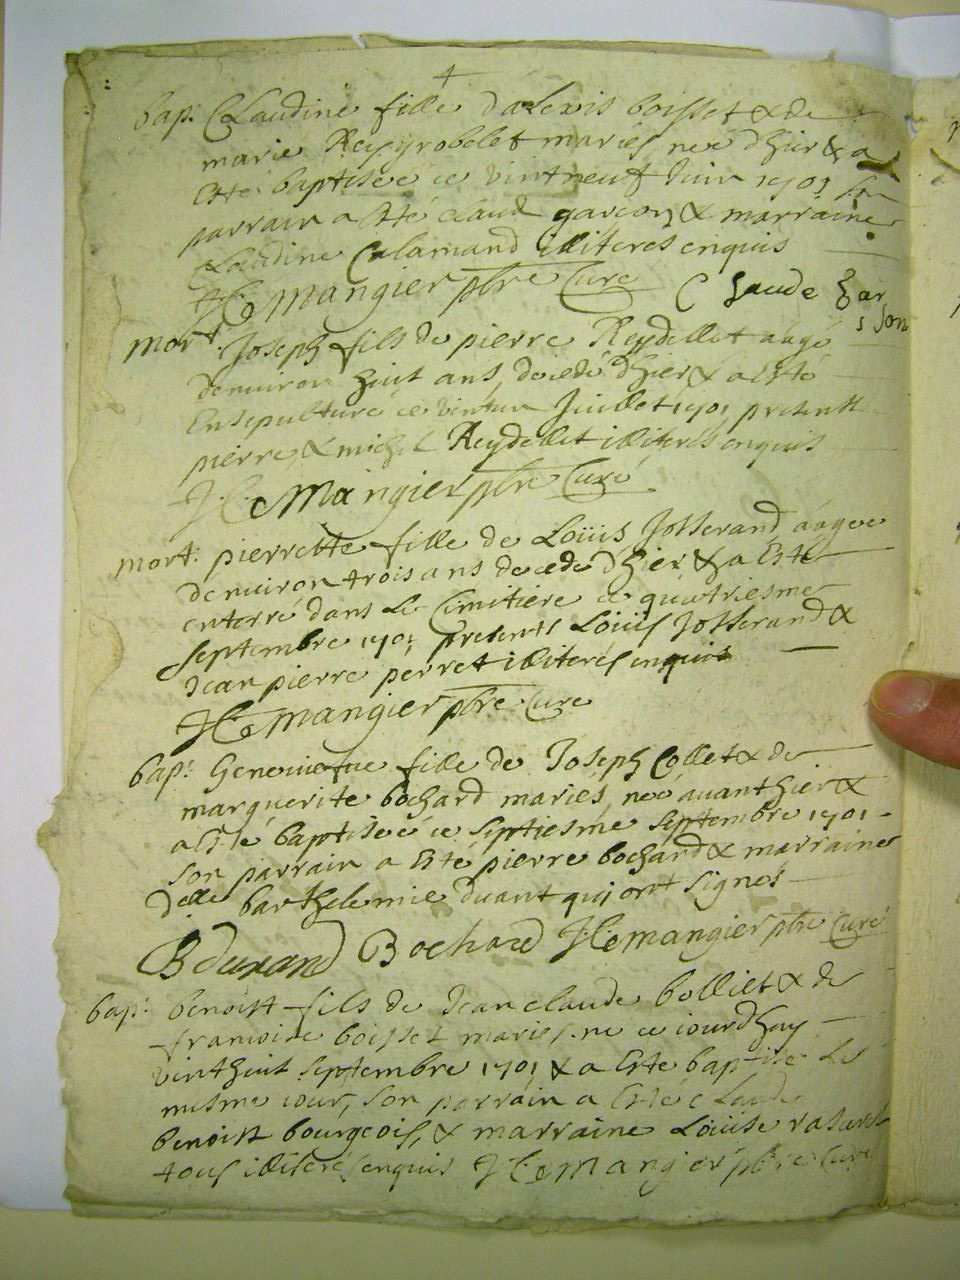 +
bap: Claudine fille dalexis boisset & de
marie Reygrobellet mariés née dhier & a
esté baptisée ce vintneuf Juin 1701 son
parrain a esté claud garçon & marraine
Claudine Calamand illiteres enquis
Mangier pbre Curé Claude gar
son
mort: Joseph fils de pierre Reydellet aagé
denuiron huit ans, decedé dhier & a esté
Ensepulturé ce vintun Juillet 1701 presents
pierre & michel Reydellet illiterés enquis
Mangier pbre Curé
mort: pierrette fille de Loüis Josserand aagee
denuiron trois ans decedé dhier & a Esté
enterré dans Le Cimitiere ce quatriesme
septembre 1701 presents Loüis Josserand &
Jean pierre perret illiterés enquis
Mangier pbre Curé
bap: Geneuiefue fille de Joseph Collet & de
marguerite bochard mariés, neé auanthier &
a esté baptisée ce septiesme septembre 1701
son parrain a Esté pierre bochard & marraine
Delle barthelemie durant qui ont signés
B durand Bochard Mangier pbre Curé
bap: benoist fils de Jean claude bolliet & de
francoise boisset mariés né ce iourdhuy
vinthuit septembre 1701 & a Esté baptisé Le
mesme iour, son parrain a Esté Claude
benoist bourgeois, & marraine Loüise
tous illiterés enquis Mangier pbre Curé